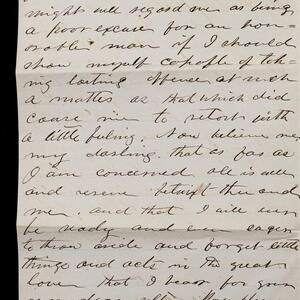 might well regard me as being
a poor excuse for an hon-
orable man if I should
show myself capable of tak-
ing lasting offence at such
a matter as that which did
cause me to retort with
a little feeling. Now believe me
my darling, that as far as
I am concerned all is well
and serene betwixt thee and
me. and that I will ever
be ready and even eager
to throw aside and forget little
things and acts in the great
love that I bear for you